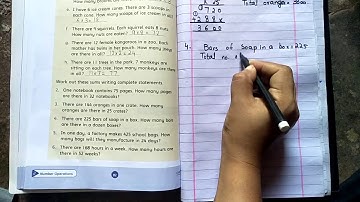 c. I have 6 ice cream cones. There are 3 scoops in
each cone. How many scoops of ice cream in all?
6 x 3 = 18
d. There are 9 squirrels. Each squirrel eats 8 nuts.
How many nuts are eaten? 9 x 8 = 72
e. There are 12 female kangaroos in a zoo. Each
mother has twins in her pouch. How many joeys
are there in all? 12 x 2 = 24
f. There are 11 trees in the park. 7 monkeys are
sitting on each tree. How many monkeys are
there in all? 11 x 7 = 77
Work out these sums writing complete statements.
2. One notebook contains 75 pages. How many pages
are there in 32 notebooks?
3. There are 144 oranges in one crate. How many
oranges are there in 25 crates?
4. There are 225 bars of soap in a box. How many bars
are there in a dozen boxes?
5. In one day, a factory makes 625 school bags. How
many bags will they manufacture in 24 days?
6. There are 168 hours in a week. How many hours
are there in 52 weeks?
Number Operations
x 25
720
+ 288x
3600
Total oranges = 3600
4. Bars of Soap in a box = 225
Total no.